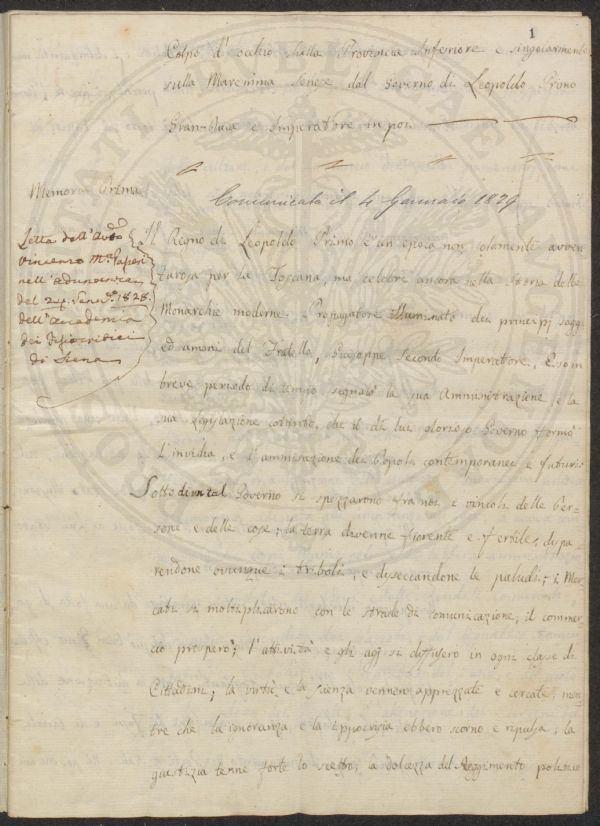 1
Colpo d'occhio sulla Provincia Inferiore e singolarmente
sulla Maremma Senese dal Governo di Leopoldo Primo
Gran-Duca e Imperatore in poi
Memoria Prima
Comunicata il 4 Gennaio 1829
Letta dell'Avto
Vincenzo Ma
nell'adunanza
del 24. Genno 1828.
dell'Accademia
dei Fisiocritici
di Siena
Il Regno di Leopoldo Primo è un epoca non solamente avven
turosa per la Toscana, ma celebre ancora nella storia delle
Monarchie moderne. Propagatore illuminato dei principj saggi
ed umani del Fratello, Giuseppe Secondo Imperatore, Esso in
breve periodo di tempo segnalò la sua Amministrazione, e la
sua Legislazione cotanto, che il di lui glorioso Governo formò
l'invidia, e l'ammirazione dei Popoli contemporanei e futuri.
Sotto di un tal Governo si spezzarono fra noi i vincoli delle Per-
sone e delle cose; la terra divenne fiorente e fertile, dispa-
rendone ovunque i triboli, e disseccandone le paludi; i Mer-
cati si moltiplicarono con le strade di comunicazione, il commer
cio prosperò; l'attività e gli agj si diffusero in ogni classe di
Cittadini; la virtù e la scienza vennero apprezzate e cercate, men
tre che la ignoranza e la ippocrisia ebbero scorno e repulsa; la
giustizia tenne forte lo scettro; la dolcezza del Reggimento politico